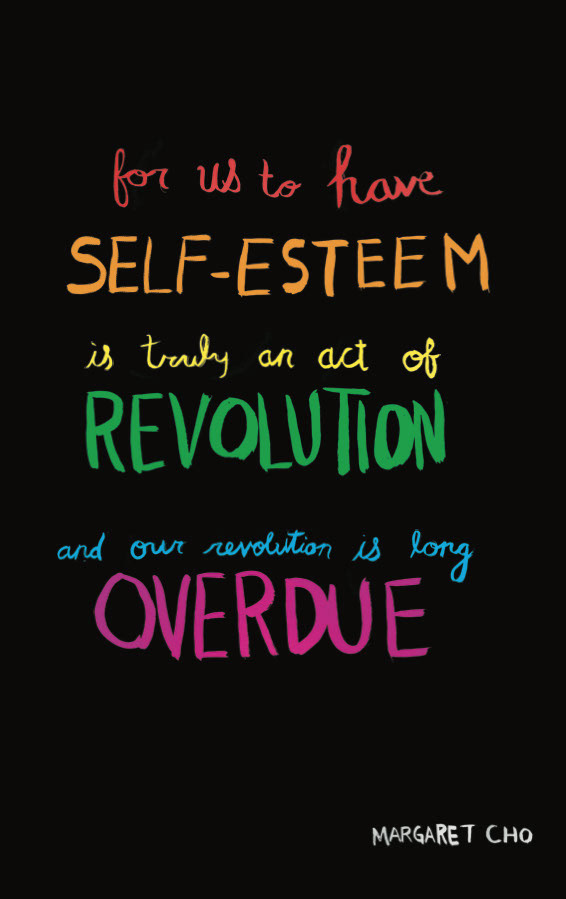 for us to have
SELF-ESTEEM
is truly an act of
REVOLUTION
and our revolution is long
OVERDUE
MARGARET CHO